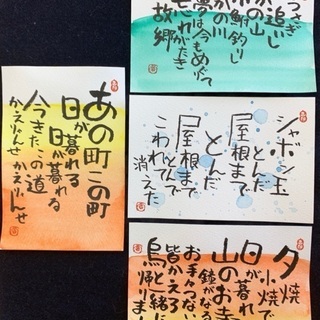 さぎ
追いし
かの山
鮒釣りし
かの川
夢は今もめぐて
忘れがたき
故郷
あの町この町
日が暮れる
日が暮れる
今きたこの道
かえりゃんせ かえりゃんせ
シャボン玉
とんだ
屋根まで
とんだ
屋根まで
とんで
こわれて
消えた
夕焼
小焼で
日が暮れ
山のお寺
鐘がなる
お手々つない
皆かえろ
烏と一緒に
帰りま